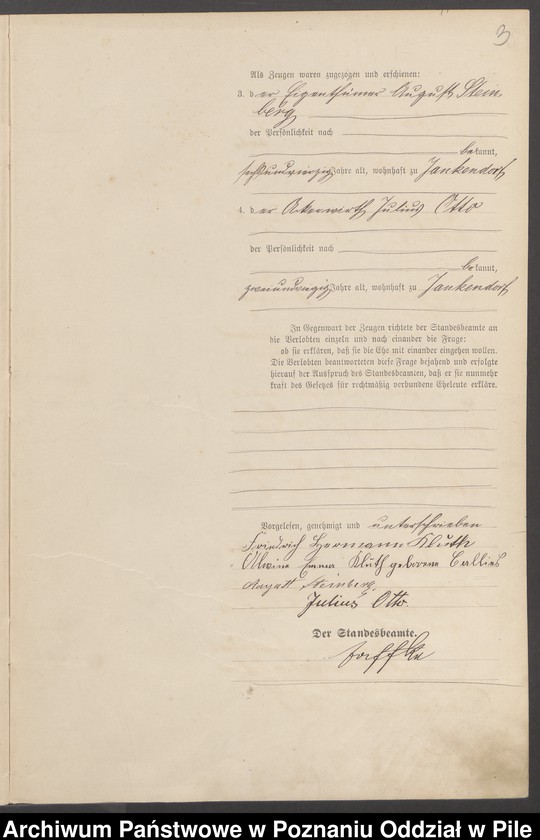 3
Als Zeugen waren zugezogen und erschienen:
3. der Eigenthümer August Stein-
berg
der Persönlichkeit nach
bekannt,
sechsundvierzig Jahre alt, wohnhaft zu Jankendorf
4. der Ackerwirth Julius Otto
der Persönlichkeit nach
bekannt,
Jahre alt, wohnhaft zu Jankendorf
In Gegenwart der Zeugen richtete der Standesbeamte an
die Verlobten einzeln und nach einander die Frage:
ob sie erklären, daß sie die Ehe mit einander eingehen wollen.
Die Verlobten beantworteten diese Frage bejahend und erfolgte
hierauf der Ausspruch des Standesbeamten, daß er sie nunmehr
kraft des Gesetzes für rechtmäßig verbundene Eheleute erkläre.
Vorgelesen, genehmigt und unterschrieben
Friedrich Hermann Kluth
Alwine Emma Kluth geborene Callies
August Steinberg.
Julius Otto.
Der Standesbeamte.
Archiwum Państwowe w Poznaniu Oddział w Pile